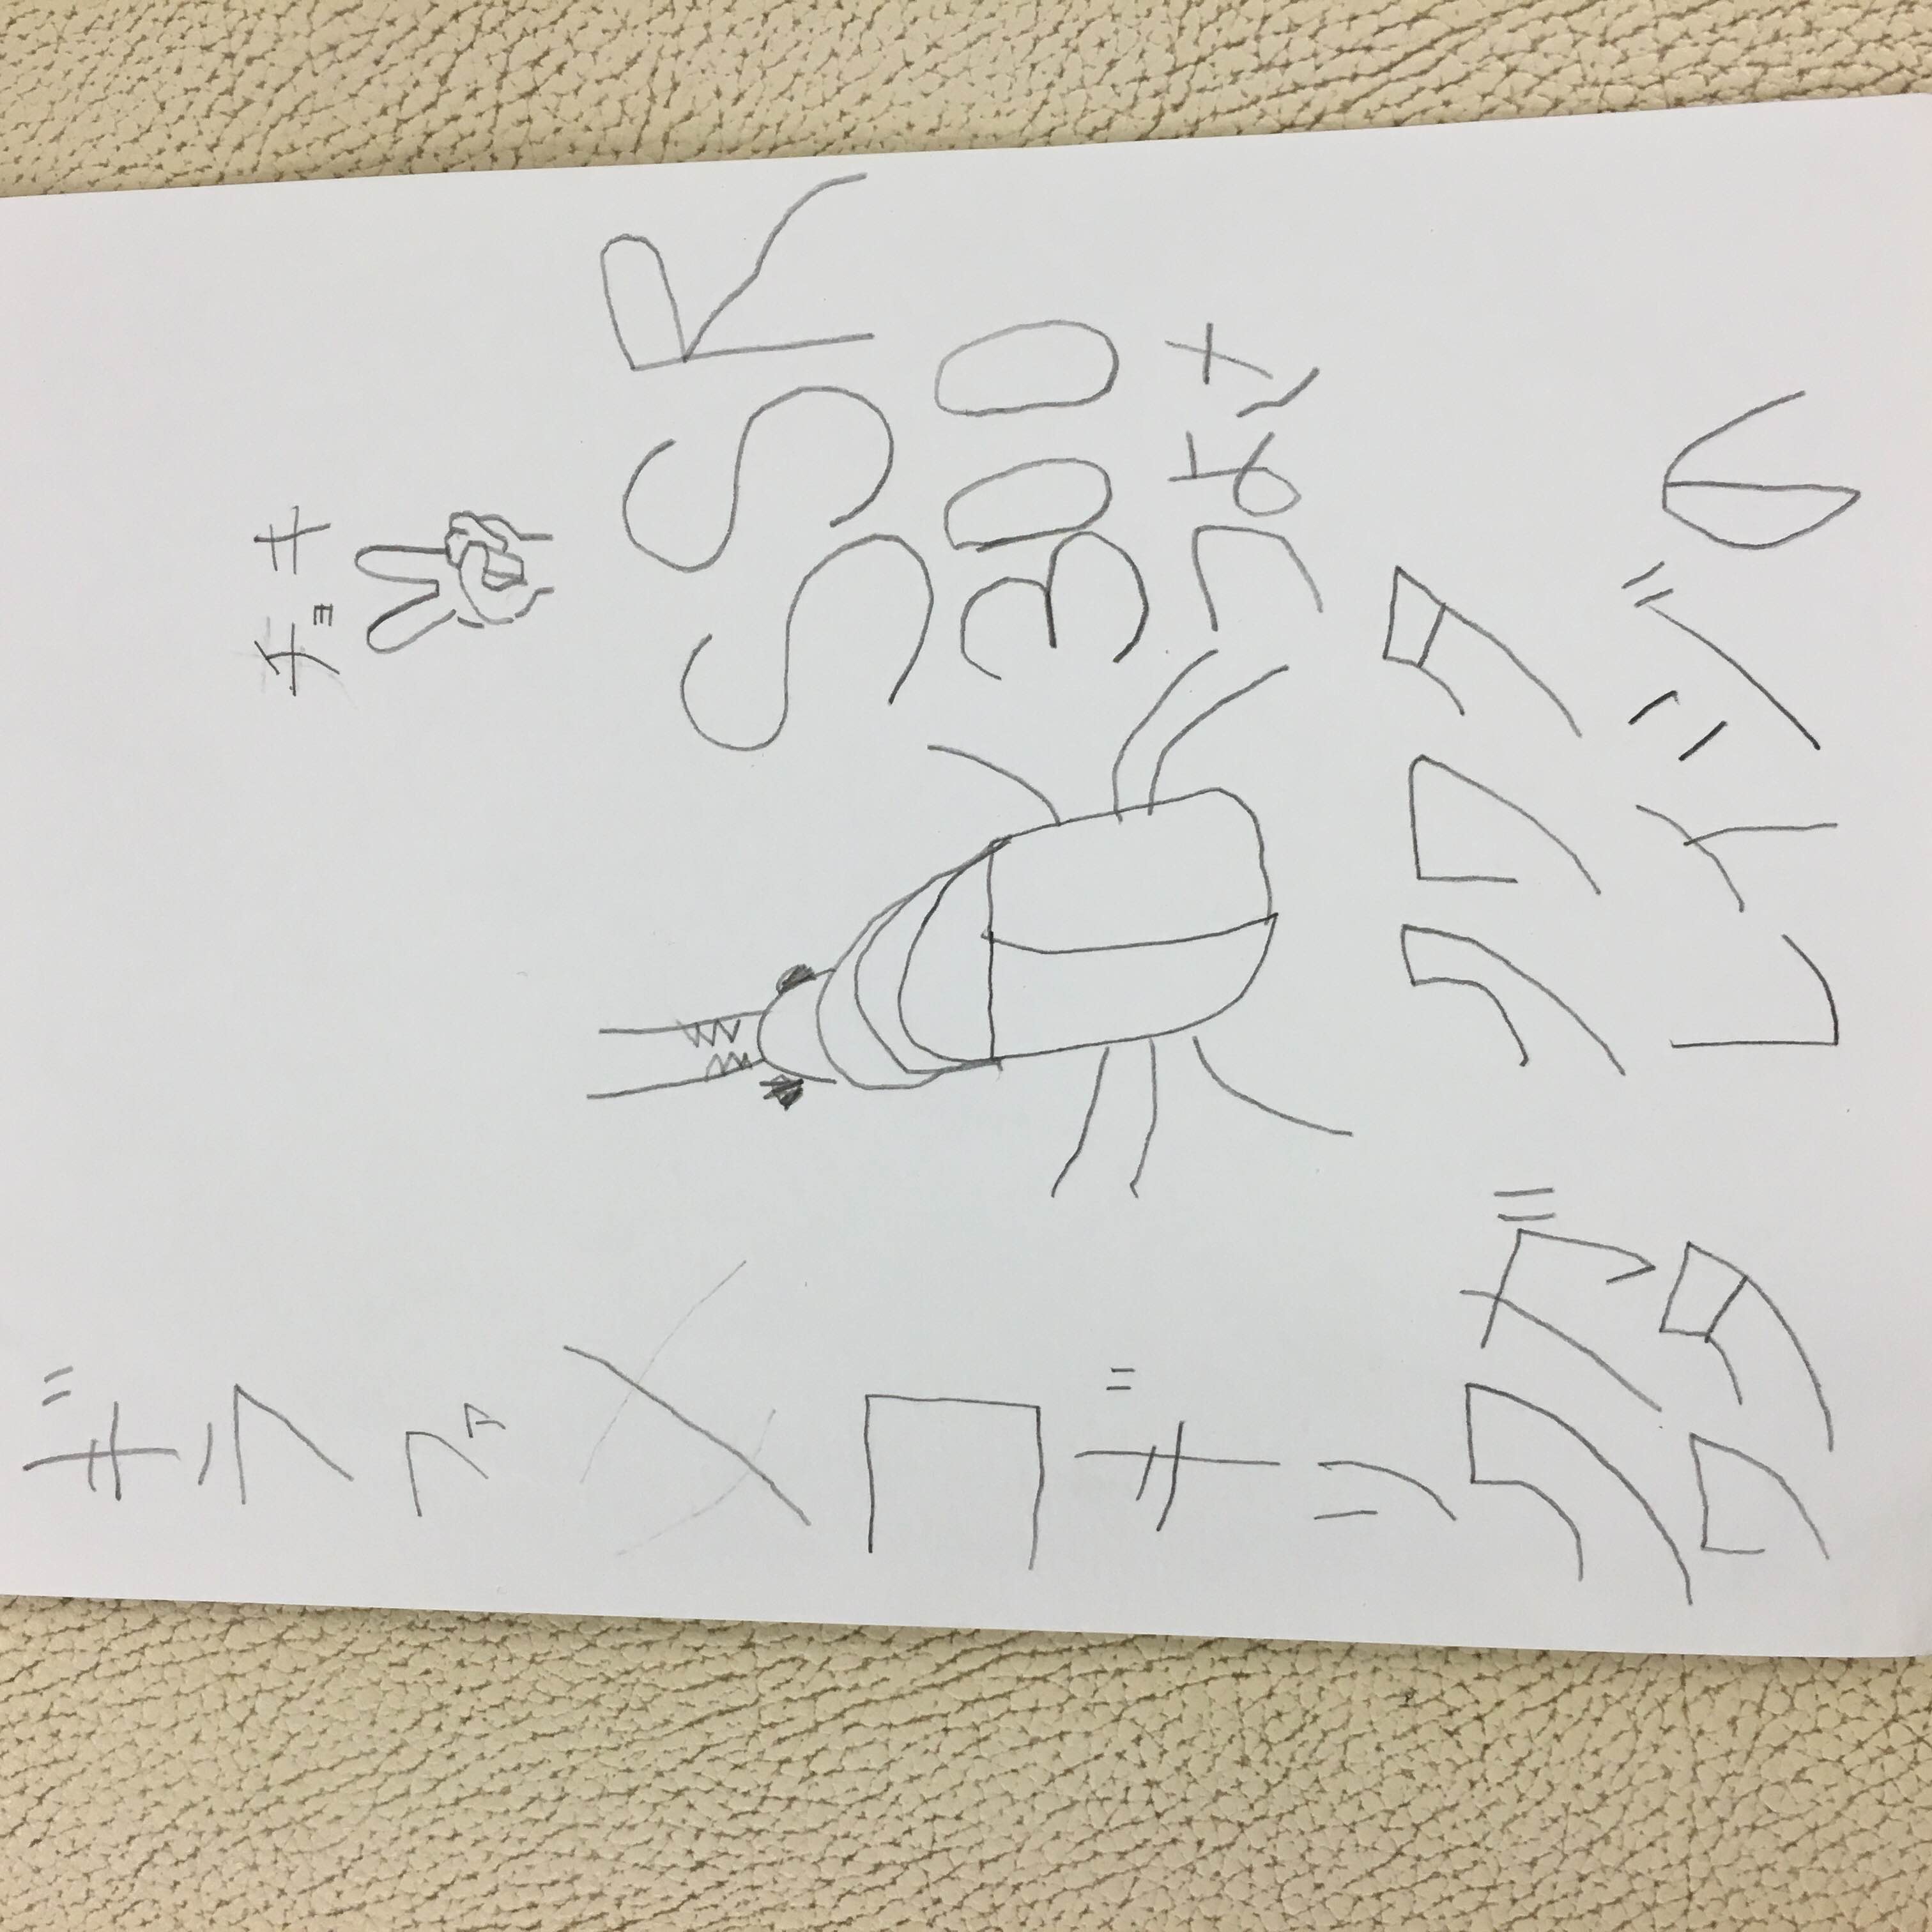 ギラファノコギリクワ
ガタ
チョキ
SSR
300
つよさ
クワタ
レイジの